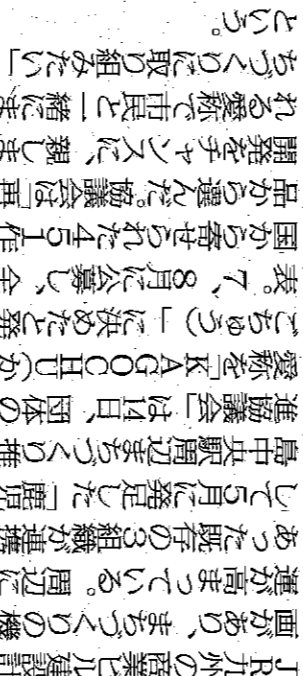 JR九州の商業ビル建設計
画があり、まちづくりの機
運が高まっている。周辺に
あった既存の3組織が連携
して5月に発足した「鹿児
島中央駅周辺まちづくり推
進協議会」は14日、団体の
愛称を「KAGOCHU(か
ごちゅう)」に決めたと発
表。7、8月に公募し、全
国から寄せられた451作
品から選んだ。協議会は「再
開発をチャンスに、親しま
れる愛称で市民と一緒にま
ちづくりに取り組みたい」
という。